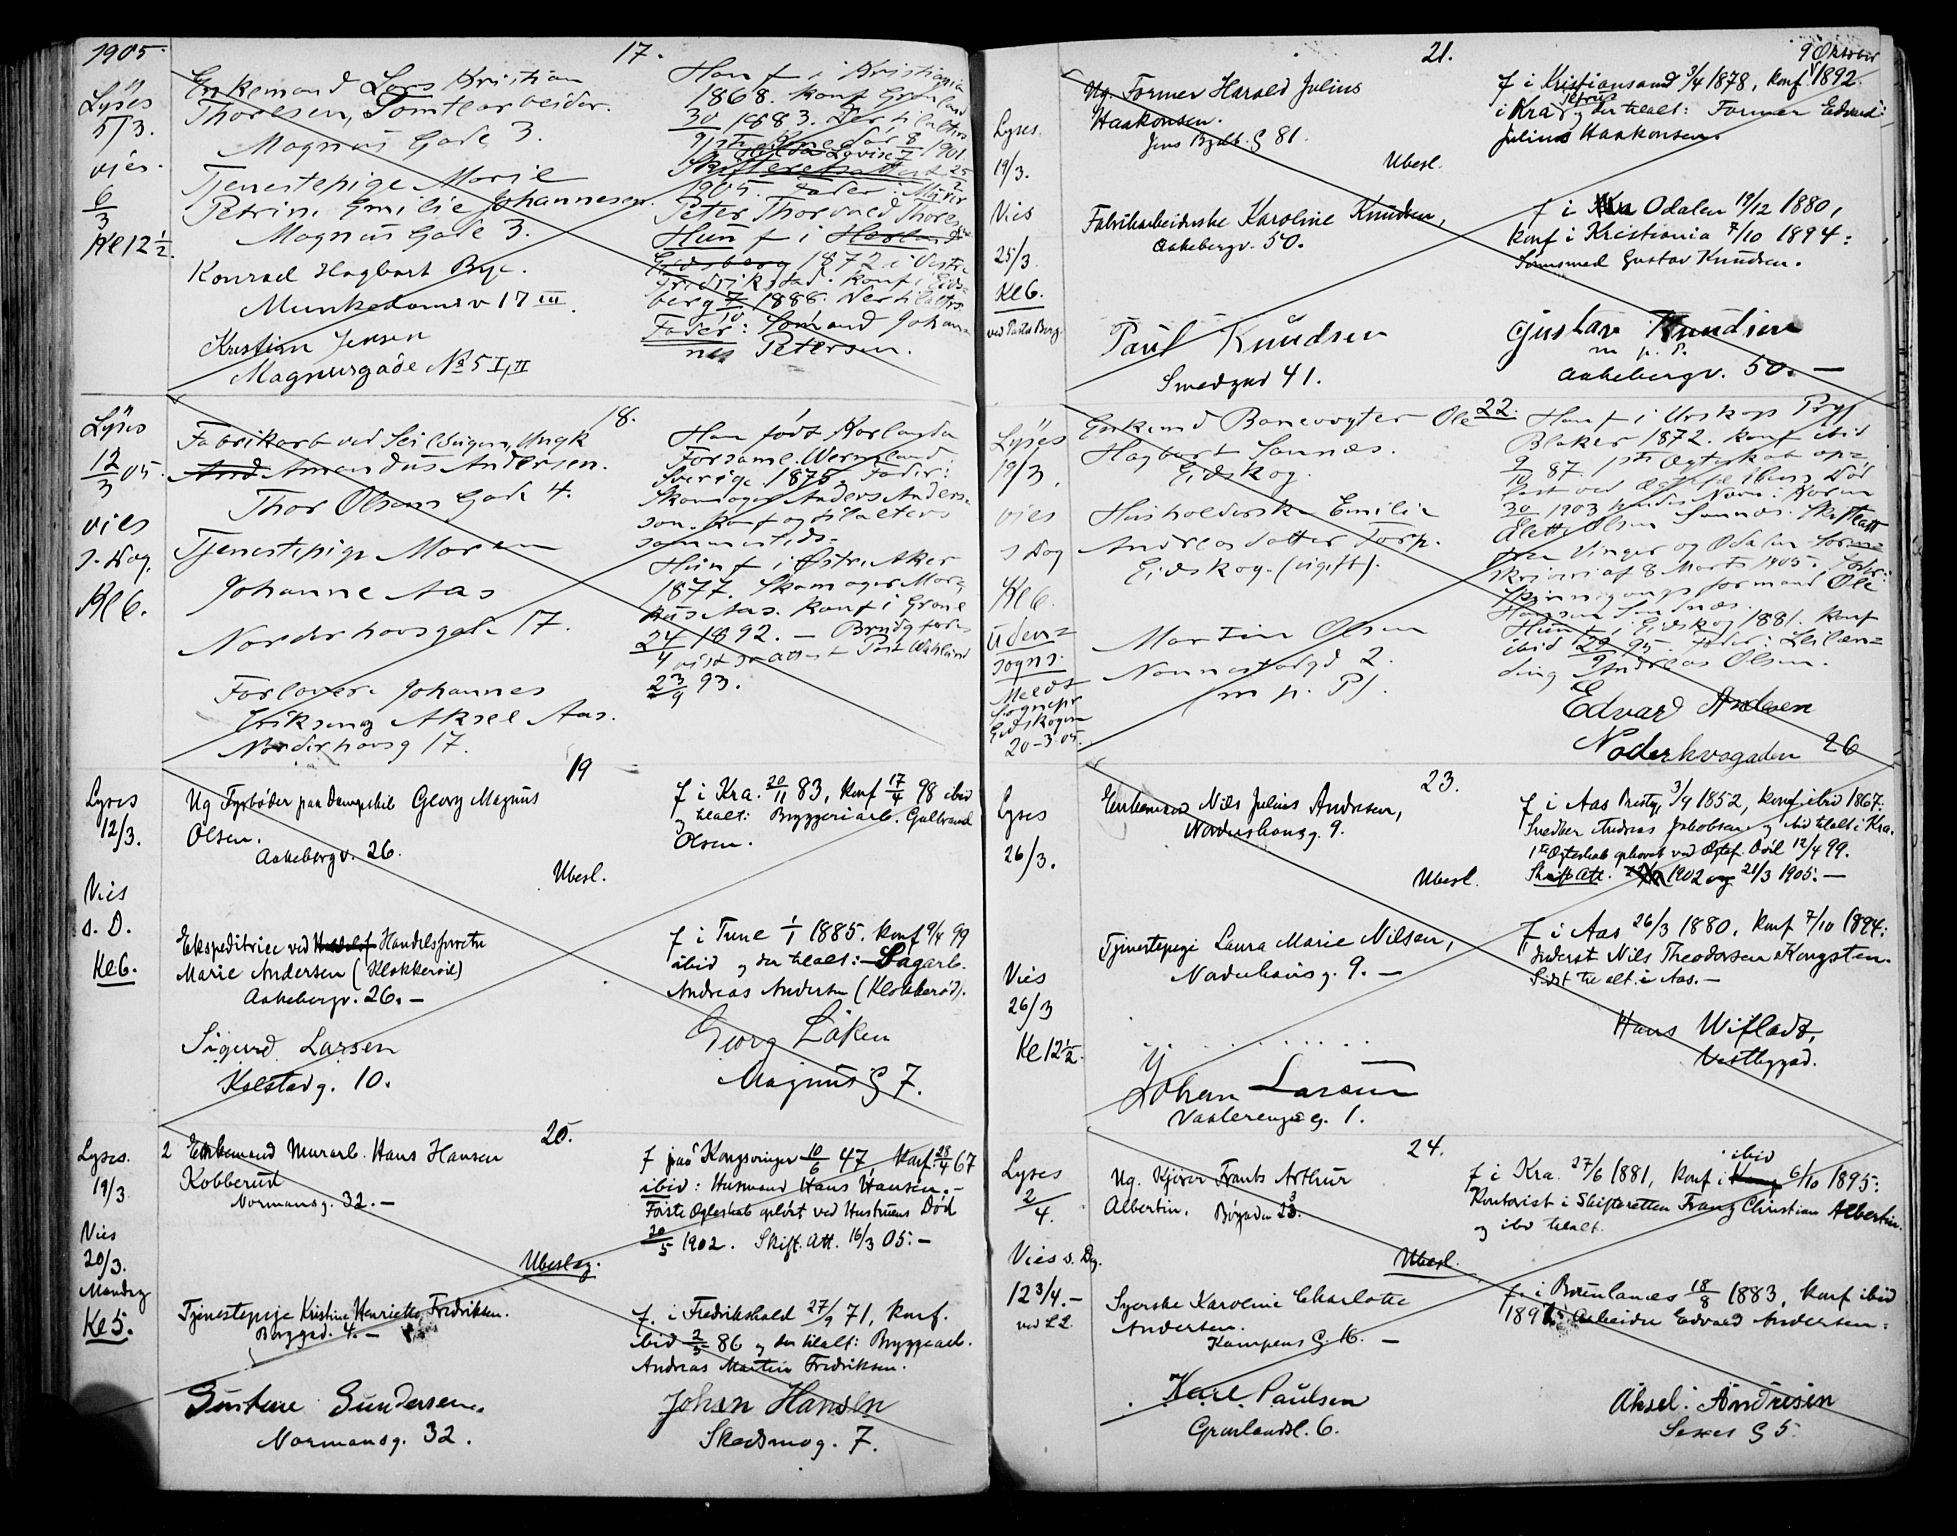 1905.
17.
Lyses
5/3.
vies
6/3
Kl 12 1/2.
Enkemand Lars Kristian
Thoresen, Tomtearbeider.
Magnus Gade 3.
Tjenestepige Marie
Petrine Emilie Johannesen.
Magnus Gade 3.
Konrad Hagbart Bye.
Munkedamsv 17 III.
Kristian Jensen
Magnusgade No 5 I, II
Han f i Kristiania
1868. konf Grønland
30/9 1883. Der tilalters
1901.
1905. Fader: Murer
Peter Thorvald Thore
Hun f i
1872 i Vestre
Fredrikstad. konf i Eids=
berg 7/10 1888. Der tilalters
Fader: Sømand Johan=
nes Petersen.
18.
Lyses
12/3 05.
vies
s. Dag.
Kl 6.
Fabrikarb ved Seildugen, Ungk
And Amandus Andersen.
Thor Olsens Gade 4.
Tjenestepige Maren
Johanne Aas
Norderhovsgade 17.
Forlovere Johannes
Eriksen og Aksel Aas.
Norderhovsg 17.
Han født Karlanda
Forsaml. Wermland.
Sverige 1875. Fader:
Skomager Anders Anders=
son. konf og tilalters
sammesteds=
Hun f i Østre Aker
1877. Skomager Mar=
kus Aas. konf i Grønl
24/4 1892. —
23/9 93.
19
Lyses
12/3.
Vies
s. D.
Kl 6.
Ug Fyrbøder paa Dampskib Georg Magnus
Olsen.
Aakebergv. 26.
Ubesl.
Ekspeditrice ved Handelsforretn
Marie Andersen (Klokkerød)
Aakebergv. 26. —
Sigurd Larsen
Kolstadg. 10.
f i Kra. 20/11 83, konf 17/4 98 ibid
og tilalt: Bryggeriarb. Gulbrand
Olsen.
f i Tune 1/1 1885. konf 9/4 99
ibid og der tilalt: Sagarb.
Andreas Andersen (Klokkerød).
Georg Løken
Magnus G 7.
20.
Lyses.
19/3
Vies
20/3.
Mandag
Kl 5.
2 Enkemand Murarb. Hans Hansen
Kobberud
Normansg. 32. —
Ubeslag.
Tjenestepige Kristine Henriette Fredriksen.
Borggd. 4. —
Gustave Gundersen.
Normansg. 32.
f paa Kongsvinger 10/6 47, Konf. 28/4 67
ibid: Husmand Hans Hansen. —
Første Ægteskab opløst ved Hustruens Død
20/5 1902. Skift. Att. 16/3 05: —
f. i Fredrikshald 27/9 71, konf.
ibid 2/5 86 og der tilalt: Bryggearb.
Andreas Martin Fredriksen.
Johan Hansen
Skedsmog. 7.
21.
Lyses.
19/3.
Vies
25/3
Kl 6.
Ug. Former Harald Julius
Haakonsen.
Jens Bjelk. G 81.
Ubesl.
Fabrikarbeiderske Karoline Knudsen,
Aakebergv. 50.
Paul Knudsen
Smedgad 41.
9 Oktober
f i Kristiansand 3/4 1878, konf 1892
i Kra og der tilalt: Former Edvard
Julius Haakonsen.
f i Odalen 19/12 1880,
konf i Kristiania 7/10 1894:
Gustav Knudsen.
Gustav Knudsen
m. p. P.
Aakebergv. 50. —
22.
Lyses
19/3.
vies
s Dag
Kl 6.
Uden=
sogns.
Meldt
Sognepr
Eidskogen
20-3-05.
Enkemd Banevogter Ole
Hagbart Sannæs.
Eidskog.
Husholderske Emilie
Andreasdatter Torp.
Eidskog. (ugift).
Martin Olsen
Nonnestadgd 2.
(m p. P).
Han f i Urskogs Prgj
Blaker 1872. konf ibid
9/10 87. 1ste Ægteskab op=
løst ved Ægtefællens Død
30/ 1903 hendes Navn: Karen
Aletta Olsen Sannæs. Skifteatt
fra Vinger og Odalen Soren=
skriveri af 8 Marts 1905. Fader:
formand Ole
Hansen Sandnæs.
Hun f i Eidskog 1881. konf
ibid 29/9 95. Fader: Leilæn=
ding Andreas Olsen.
Edvard Andersen
Noderhvogaden 26
23.
Lyses
26/3.
Vies
26/3
Kl 12 1/2.
Enkemand Nils Julius Andersen,
Norderhovsg. 9.
Ubesl.
Tjenestepige Laura Marie Nilsen,
Norderhovsg. 9. —
Johan Larsen
Vaalerengeg. 1.
f i Aas Prestg. 3/4 1852, konf ibid 1867:
Snedker Andreas Jakobsen og ibid tilalt i Kra.
1ste Ægteskab ophævet ved Ægtef. Død 12/4 99.
Skift Att. 1902 og 21/3 1905. —
f i Aas 26/3 1880, konf 7/10 1894:
Inderst Nils Theodorsen Kongsten.
Sidst tilalt. i Aas. —
Hans Wifladt,
Vestbygad.
24.
Lyses
2/4.
Vies s. Dg.
12 3/4. —
Ug. Kjører Frants Arthur
Albertin. Bøgaden 23.
Ubesl.
Syerske Karoline Charlotte
Andersen.
Kampens G. 16. —
Karl Paulsen
Grønlandsl. 6.
ibid
f i Kra. 27/6 1881, konf i 6/10 1895:
Kontorist i Skifteretten Franz Christian Albertin.
og ibid tilalt.
f. i Brunlanæs 18/8 1883, konf ibid
1897: Arbeider Edvard Andersen:
Aksel. Andresen
Sexes G 5.